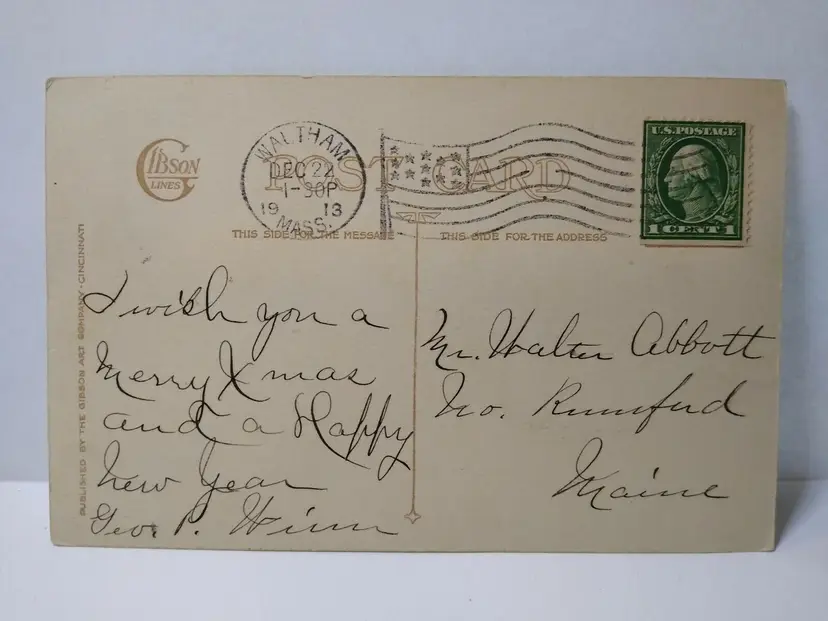 GIBSON
LINES
POST CARD
WALTHAM
DEC 22
1-30P
19 13
MASS.
U.S. POSTAGE
1 CENT 1
THIS SIDE FOR THE MESSAGE
THIS SIDE FOR THE ADDRESS
PUBLISHED BY THE GIBSON ART COMPANY · CINCINNATI
I wish you a
Merry Xmas
and a Happy
New Year
Geo. P. Winn
Mr. Walter Abbott
No. Rumford
Maine